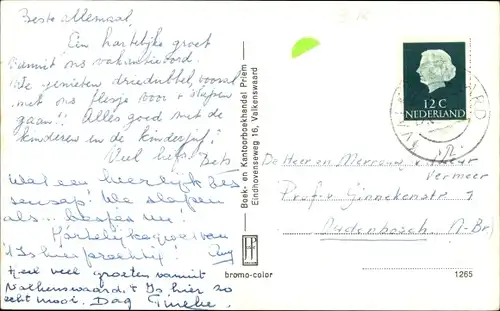 Beste allemaal,
Een hartelijke groet
vanuit ons vakantieoord.
We genieten driedubbel, vooral
met ons flesje voor 't slapen
gaan!! Alles goed met de
kinderen en de
Veel liefs, Bets
Wat een heerlijk
We slapen
als...
Hartelijke groet van
't Is hier prachtig!
Heel veel groeten vanuit
Valkenswaard. 't Is hier zo
echt mooi. Dag Tineke.
Boek- en Kantoorboekhandel Priem
Eindhovenseweg 16, Valkenswaard
bromo-color
12 C
NEDERLAND
De Heer en Mevrouw
Vermeer
Prof. v. Ginnekenstr 1
Oudenbosch. (N-Br)
1265